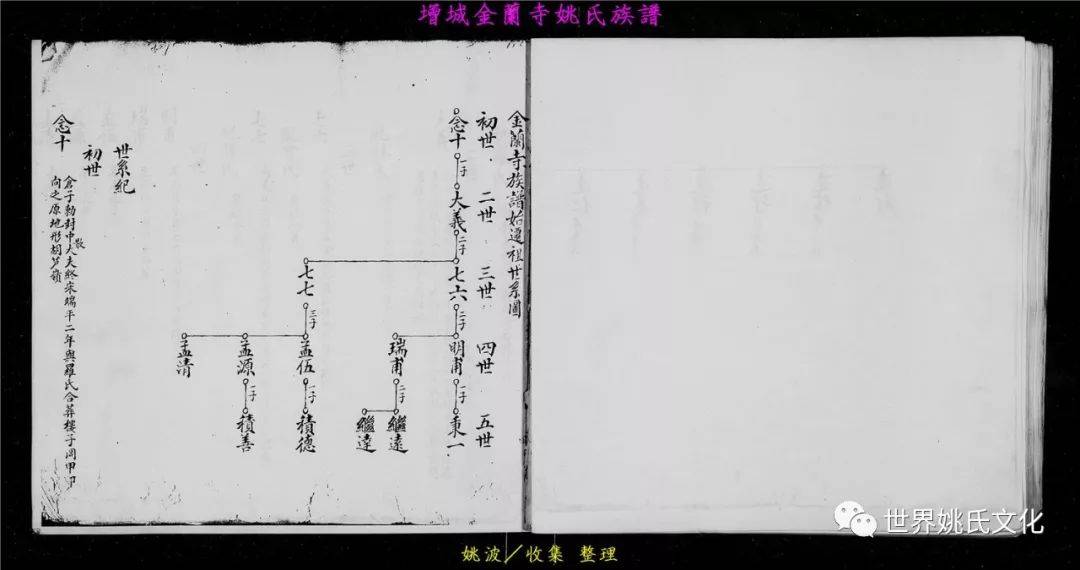 增城金蘭寺姚氏族譜
金蘭寺族譜始遷祖世系圖
初世 二世 三世 四世 五世
念十 一子 大義 二子 七六 二子 明甫 一子 秉一
瑞甫 二子 繼遠
繼達
七七 三子 孟伍 一子 積德
孟源 一子 積善
孟清
世系紀
初世
念十
倉子勅封中散大夫終宋瑞平二年與羅氏合葬樓子岡甲卯
向之原地形胡芦嶺
姚波／收集 整理
世界姚氏文化